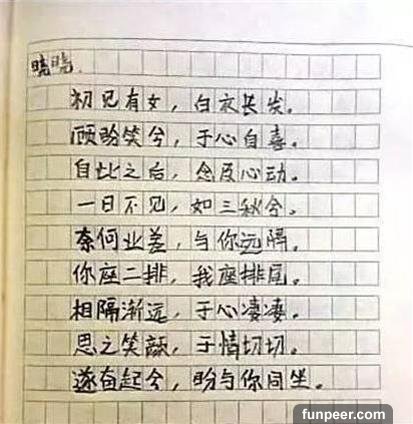 晓晓.
初见有女，白衣长发。
顾盼笑兮，于心自喜。
自此之后，念及心动。
一日不见，如三秋兮。
奈何业差，与你远隔。
你座二排，我座排尾。
相隔渐远，于心凄凄。
思之笑颜，于情切切。
遂奋起兮，盼与你同坐。
funpeer.com